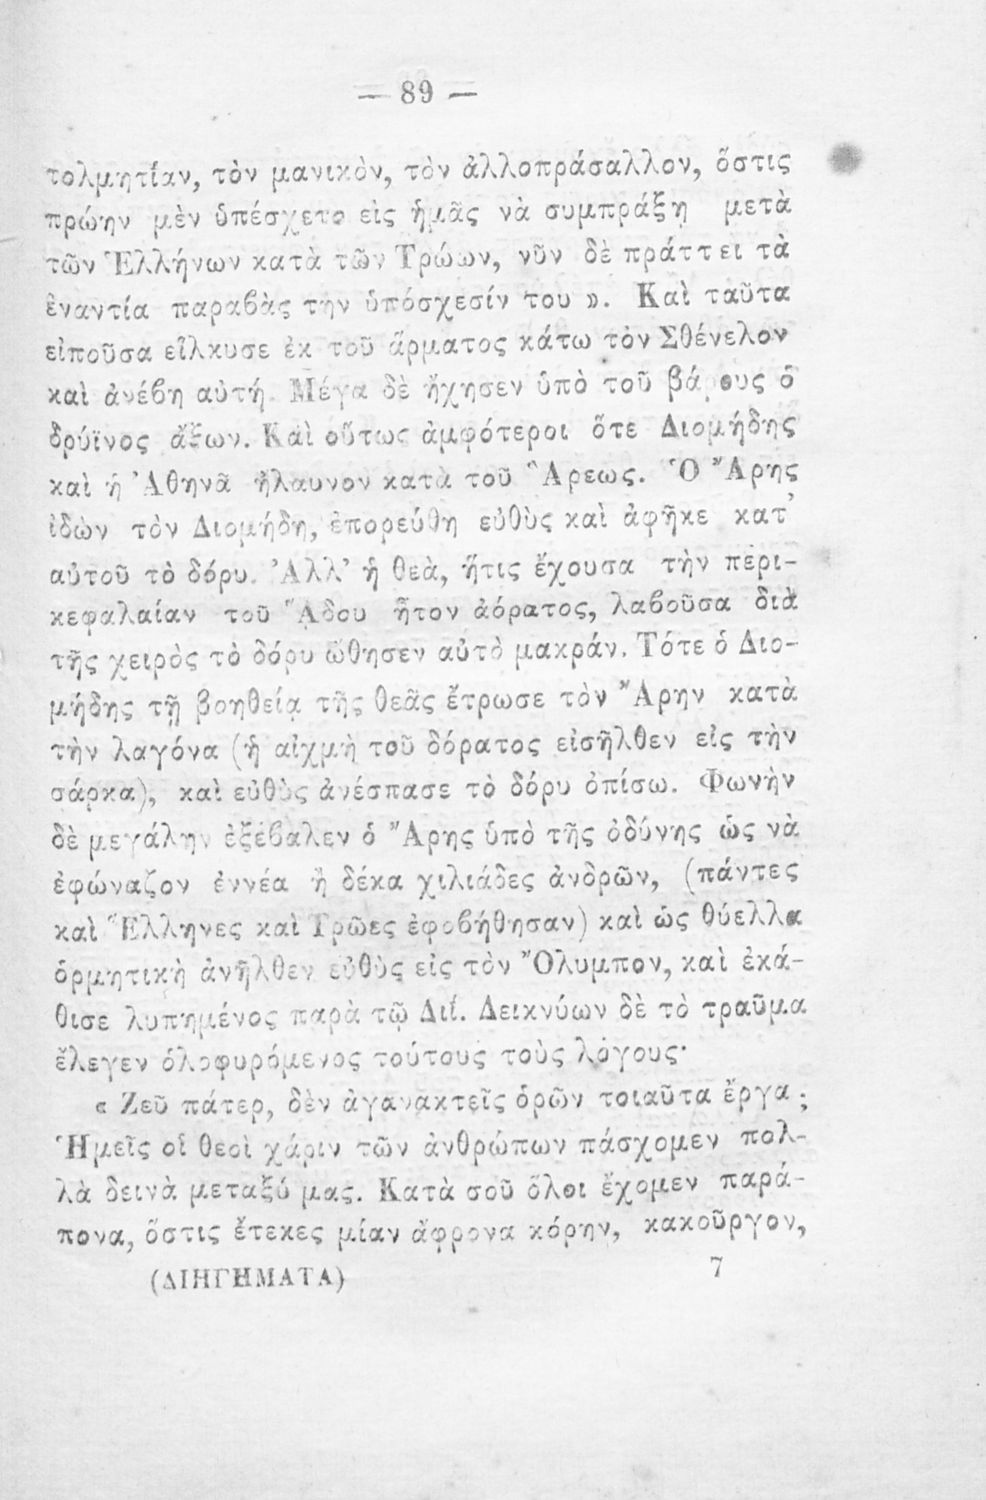 — 89 —
τολμητίαν, τὸν μανικὸν, τὸν ἀλλοπράσαλλον, ὅστις
πρώην μὲν ὑπέσχετο εἰς ἡμᾶς νὰ συμπράξῃ μετὰ
τῶν Ἑλλήνων κατὰ τῶν Τρώων, νῦν δὲ πράττει τὰ
ἐναντία παραβὰς τὴν ὑπόσχεσίν του ». Καὶ ταῦτα
εἰποῦσα εἵλκυσε ἐκ τοῦ ἅρματος κάτω τὸν Σθένελον
καὶ ἀνέβη αὐτή. Μέγα δὲ ἤχησεν ὑπὸ τοῦ βάρους ὁ
δρύϊνος ἄξων. Καὶ οὕτως ἀμφότεροι ὅτε Διομήδης
καὶ ἡ Ἀθηνᾶ ἤλαυνον κατὰ τοῦ Ἄρεως. Ὁ Ἄρης
ἰδὼν τὸν Διομήδη, ἐπορεύθη εὐθὺς καὶ ἀφῆκε κατ’
αὐτοῦ τὸ δόρυ. Ἀλλ’ ἡ θεὰ, ἥτις ἔχουσα τὴν περι-
κεφαλαίαν τοῦ ᾍδου ἦτον ἀόρατος, λαβοῦσα διὰ
τῆς χειρὸς τὸ δόρυ ὤθησεν αὐτὸ μακράν. Τότε ὁ Διο-
μήδης τῇ βοηθείᾳ τῆς θεᾶς ἔτρωσε τὸν Ἄρην κατὰ
τὴν λαγόνα (ἡ αἰχμὴ τοῦ δόρατος εἰσῆλθεν εἰς τὴν
σάρκα), καὶ εὐθὺς ἀνέσπασε τὸ δόρυ ὀπίσω. Φωνὴν
δὲ μεγάλην ἐξέβαλεν ὁ Ἄρης ὑπὸ τῆς ὀδύνης ὡς νὰ
ἐφώναζον ἐννέα ἢ δέκα χιλιάδες ἀνδρῶν, (πάντες
καὶ Ἕλληνες καὶ Τρῶες ἐφοβήθησαν) καὶ ὡς θύελλα
ὁρμητικὴ ἀνῆλθεν εὐθὺς εἰς τὸν Ὄλυμπον, καὶ ἐκά-
θισε λυπημένος παρὰ τῷ Διΐ. Δεικνύων δὲ τὸ τραῦμα
ἔλεγεν ὀλοφυρόμενος τούτους τοὺς λόγους·
« Ζεῦ πάτερ, δὲν ἀγανακτεῖς ὁρῶν τοιαῦτα ἔργα ;
Ἡμεῖς οἱ θεοὶ χάριν τῶν ἀνθρώπων πάσχομεν πολ-
λὰ δεινὰ μεταξύ μας. Κατὰ σοῦ ὅλοι ἔχομεν παρά-
πονα, ὅστις ἔτεκες μίαν ἄφρονα κόρην, κακοῦργον,
(ΔΙΗΓΗΜΑΤΑ) 7